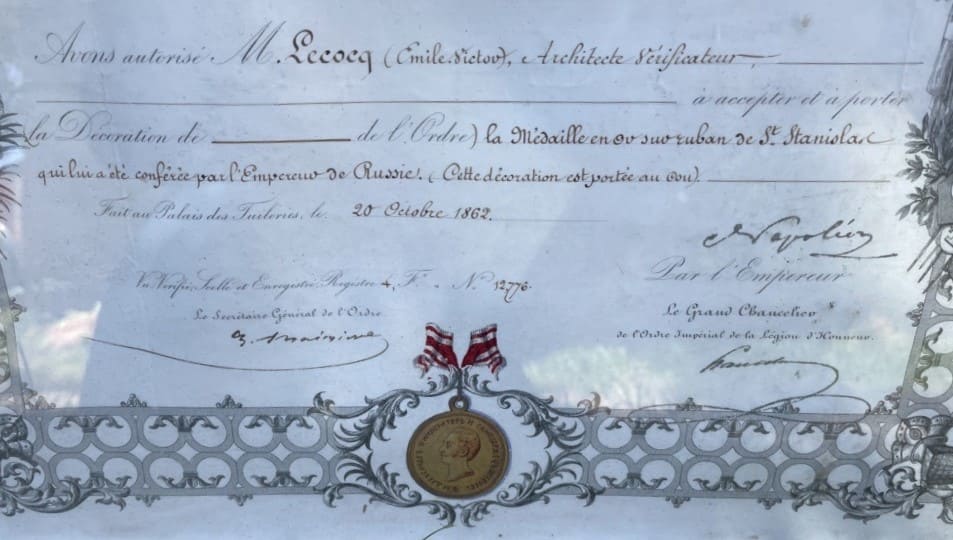 Avons autorisé M. Lecocq (Emile Victor), Architecte Vérificateur,
à accepter et à porter
la Décoration de de l'Ordre) la Médaille en or sur ruban de St. Stanislas
qui lui a été conférée par l'Empereur de Russie. (Cette décoration est portée au cou).
Fait au Palais des Tuileries, le 20 Octobre 1862.
Napoléon
Vu, Vérifié, Scellé et Enregistré, Registre 4, F° N° 12,776.
Par l'Empereur
Le Secrétaire Général de l'Ordre
Le Grand Chancelier
de l'Ordre Impérial de la Légion d'Honneur.